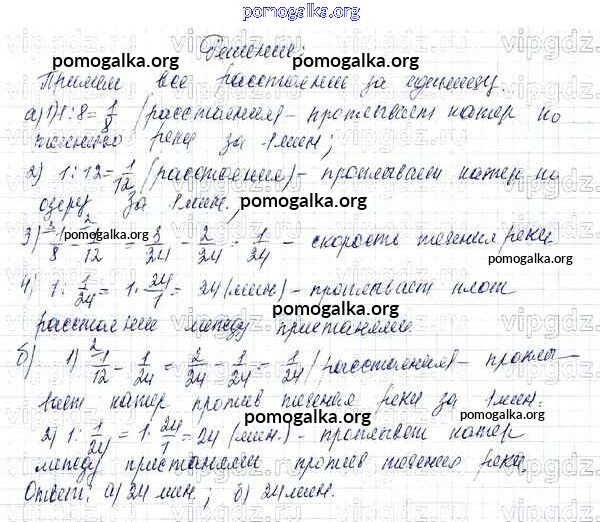 pomogalka.org
Решение:
pomogalka.org
Примем все расстояние за единицу
а) 1) 1:8=1/8 (расстояния) – проплывает катер по
течению реки за 1 мин;
pomogalka.org
2) 1:12=1/12 (расстояния) – проплывает катер по
озеру за 1 мин.;
pomogalka.org
3) 3 1/8 - 2 1/12 = 3/24 - 2/24 = 1/24 – скорость течения реки
pomogalka.org
pomogalka.org
4) 1 : 1/24 = 1 · 24/1 = 24 (мин) – проплывает плот
pomogalka.org
расстояние между пристанями
б) 1) 2 1/12 - 1/24 = 2/24 - 1/24 = 1/24 (расстояния) – проплы-
pomogalka.org
вает катер против течения реки за 1 мин.
pomogalka.org
pomogalka.org
2) 1 : 1/24 = 1 · 24/1 = 24 (мин.) – проплывает катер
между пристанями против течения реки.
pomogalka.org
Ответ: а) 24 мин.; б) 24 мин.
pomogalka.org